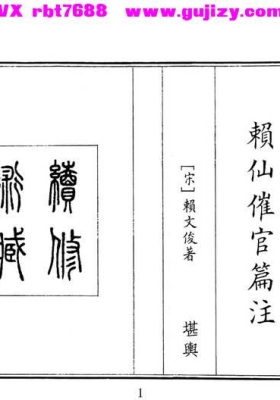 VX rbt7688 www.gujizy.com
賴仙催官篇注
[宋]賴文俊著 堪輿
續修
1